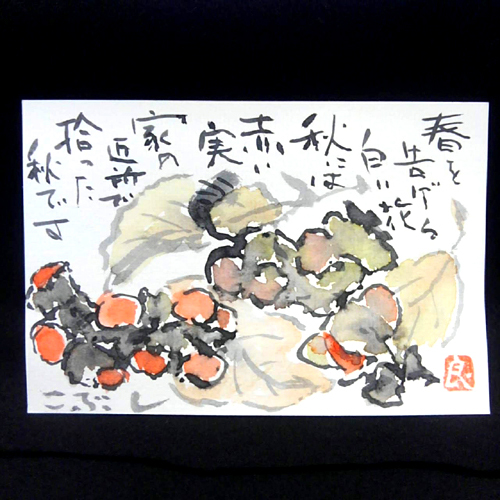 春を
告げる
白い花
秋には
赤い
実
家の
近所で
拾った
秋です
こぶし
良